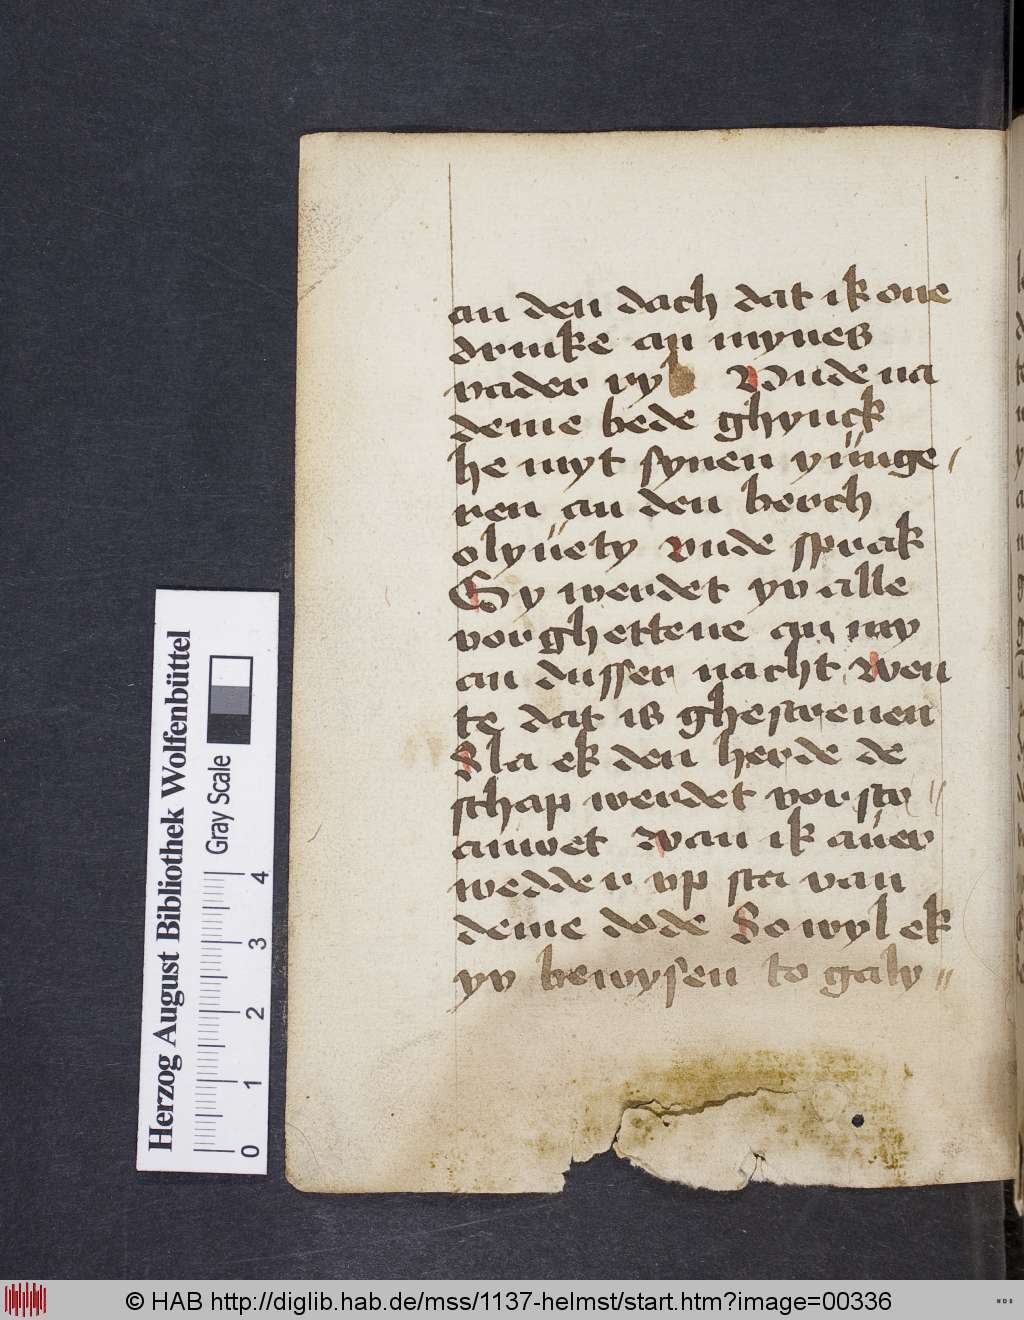 an den dach dat ik one
drinke an mynes
vader ryk Vnde na
deme bede ghynck
he myt synen yünge
ren an den berch
olyüety vnde sprak
Gy werdet yv alle
vorghettene an my
an dusser nacht wen
te dat is ghescreuen
Sla ek den herde de
schap werdet vorstr
auwet wan ik aüer
wedder vp sta van
deme dode So wyl ek
yv bewysen to galy
Herzog August Bibliothek Wolfenbüttel
Gray Scale
0 1 2 3 4
© HAB http://diglib.hab.de/mss/1137-helmst/start.htm?image=00336